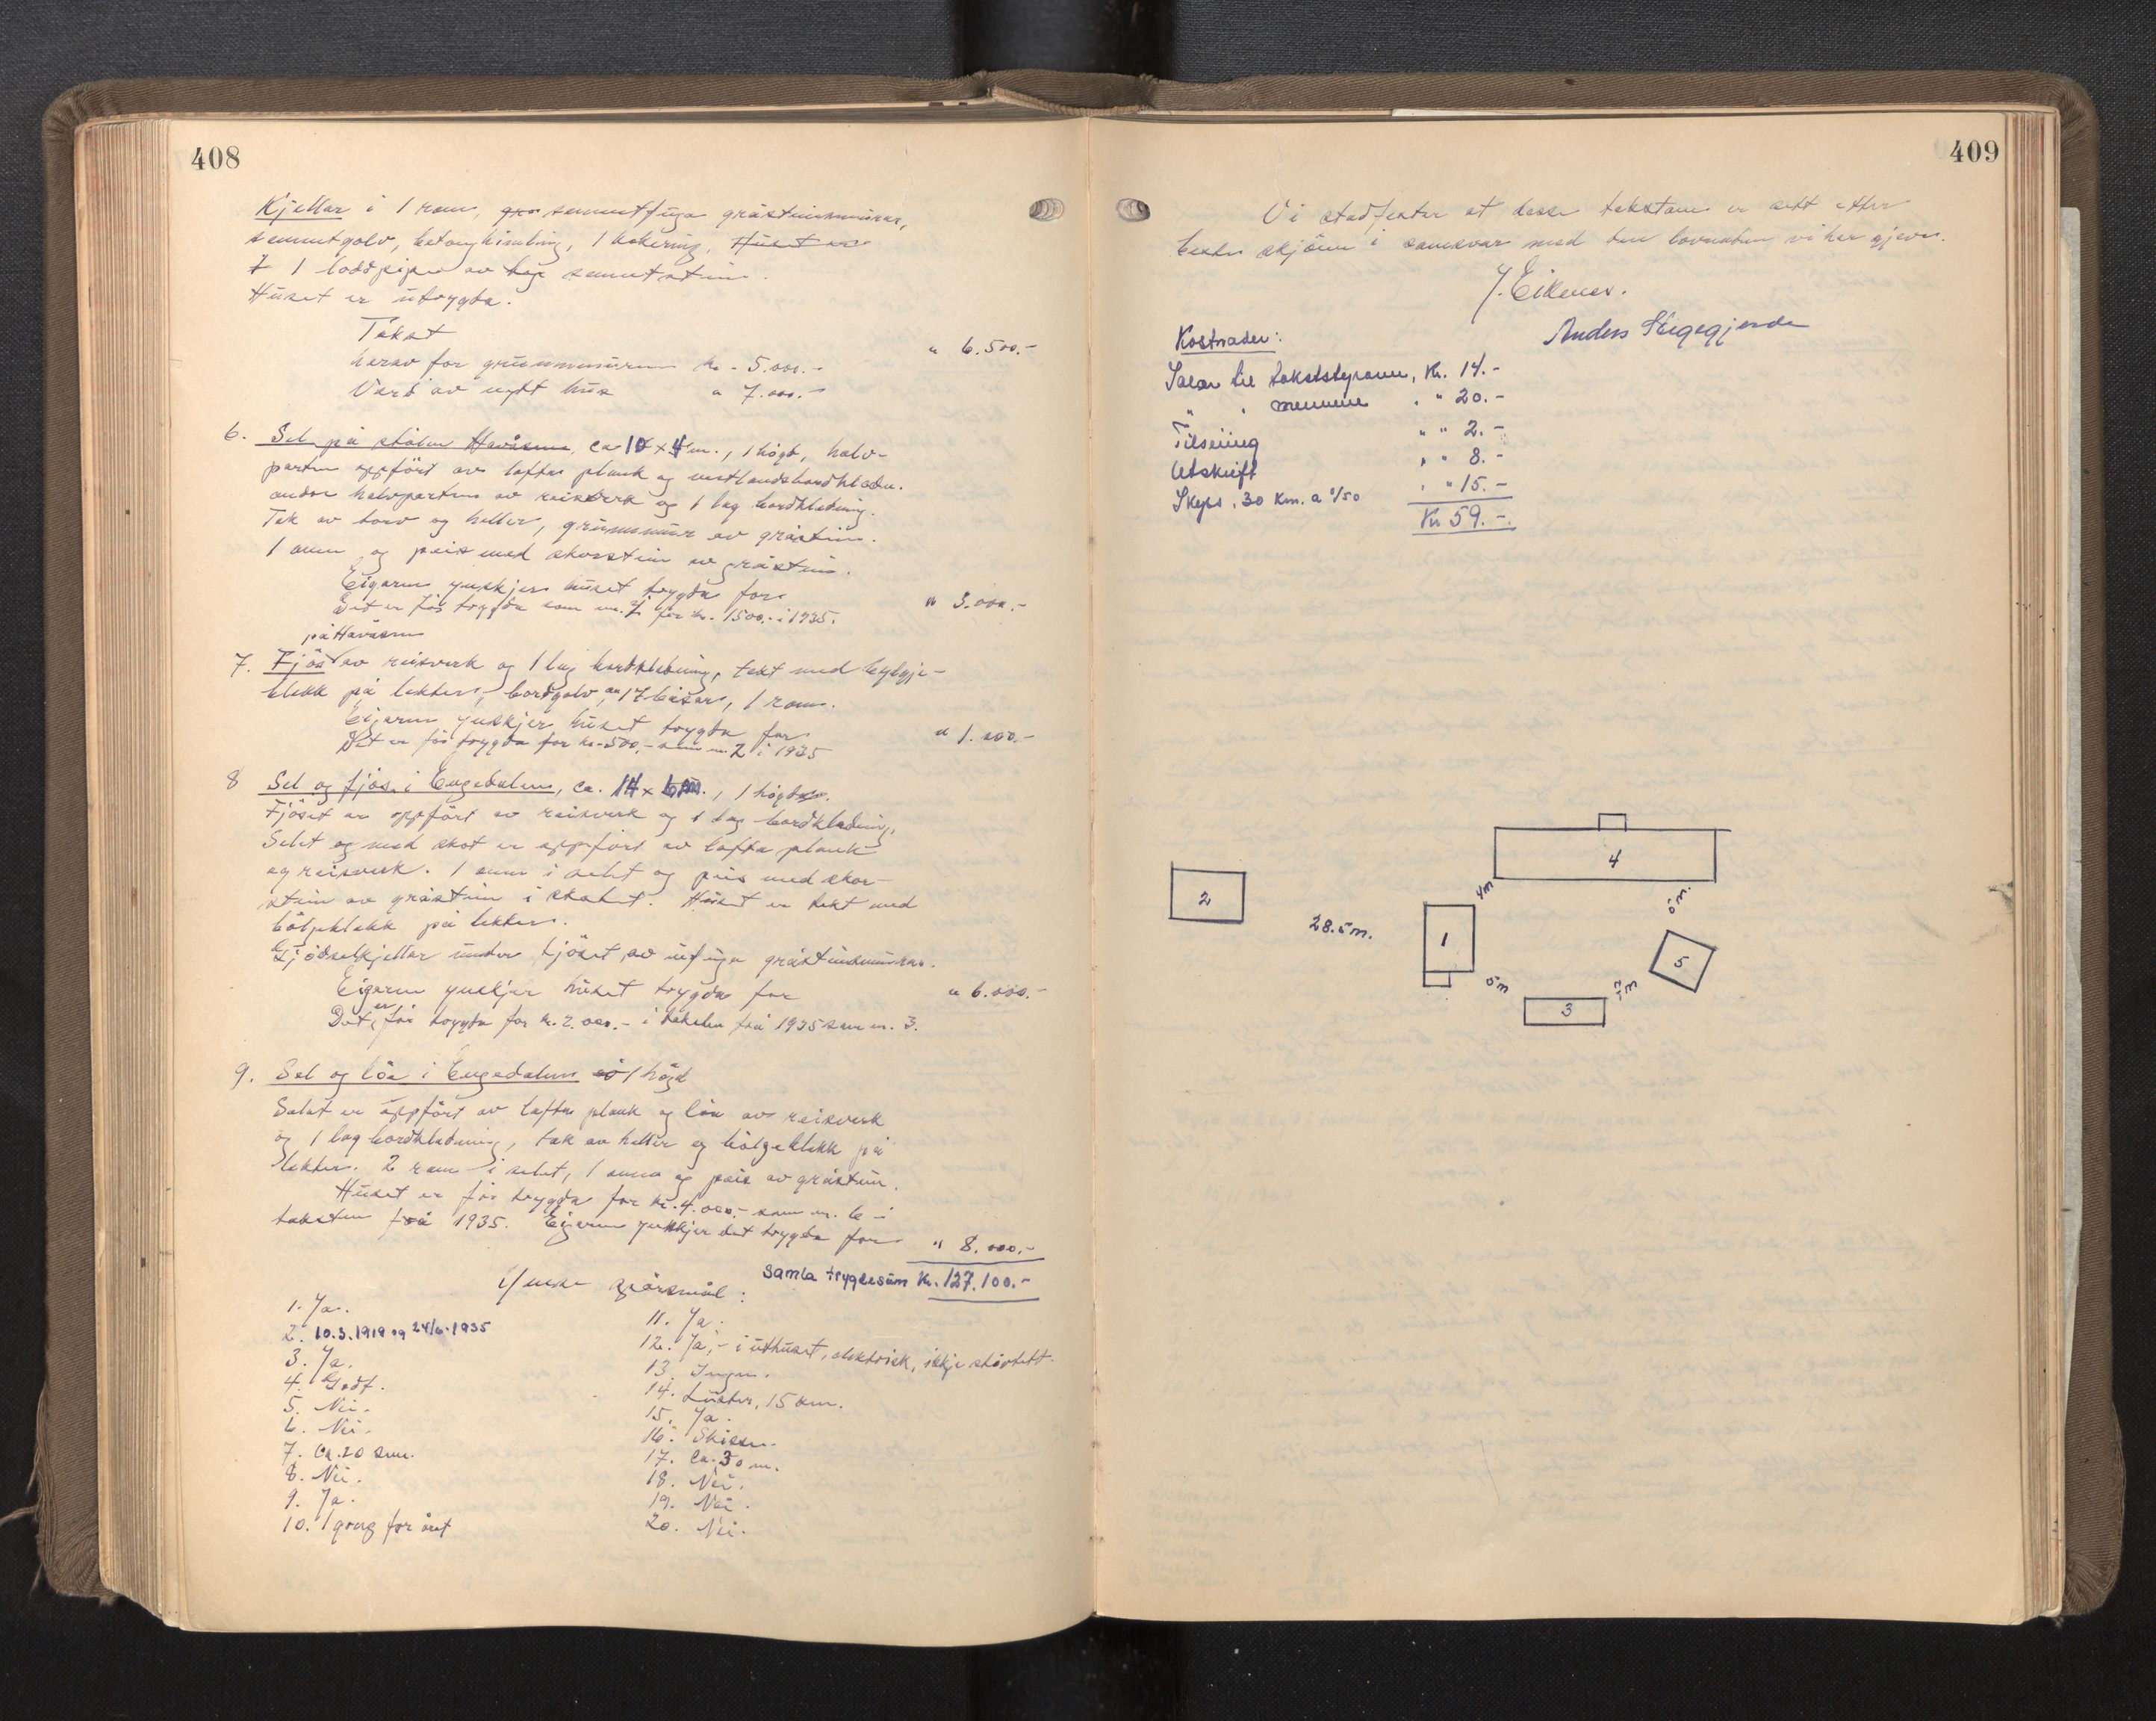 408
Kjellar i 1 rom, sementfuga gråsteinsmurar,
sementgolv, betonghimling, 1 Huset er
1 loddpipe av sementstein.
Huset er utrygda.
Takst " 6.500.-
herav for grunnmuren kr. 5.000.-
Verd av nytt hus " 7.000.-
6. Sel på stølen Havåsen, ca 10 x 4 m., 1 høgd, halv-
parten oppført av lafta plank og vestlandsbordkledn.
andre halvparten av reisverk og 1 lag bordkledning.
Tak av torv og heller, grunnmur av gråstein.
1 omn og peis med skorstein av gråstein.
Eigaren ynskjer huset trygda for " 3.000.-
Det er før trygda som nr. 1 for kr. 1500.- i 1935.
på Havåsen
7. Fjös av reisverk og 1 lag bordkledning, tekt med bylgje-
blekk på lekter, bordgolv, 17 båsar, 1 rom.
Eigaren ynskjer huset trygda for " 1.000.-
Det er før trygda for kr. 500.- som nr. 2 i 1935
8 Sel og fjös i Engedalen, ca. 14 x 6 m., 1 høgd.
Fjöset er oppfört av reisverk og 1 lag bordkledning.
Selet og med skot er oppfört av lafta plank
og reisverk. 1 omn i selet og peis med skor-
stein av gråstein i skotet. Huset er tekt med
bölgeblekk på lekter.
Gjödselkjellar under fjöset av ufuga gråsteinsmurar.
Eigaren ynskjer huset trygda for " 6.000.-
Det er før trygda for kr. 2.000.- i taksten frå 1935 som nr. 3.
9. Sel og löe i Engedalen 1 högd
Selet er oppfört av lafta plank og löa av reisverk
og 1 lag bordkledning, tak av heller og bölgeblekk på
lekter. 2 rom i selet, 1 omn og peis av gråstein.
Huset er før trygda for kr. 4.000.- som nr. 6 i
taksten frå 1935. Eigaren ynskjer det trygda for " 8.000.-
Samla trygdesum kr. 127.100.-
Ymse spörsmål:
1. Ja.
2. 10.3.1919 og 24/6-1935
3. Ja.
4. Godt.
5. Nei.
6. Nei.
7. Ca. 20 sm.
8. Nei.
9. Ja.
10. 1 gong for året
11. Ja.
12. Ja, - i uthuset, elektrisk, ikkje støvtett.
13. Ingen.
14. Luster, 15 km.
15. Ja.
16. Skisse.
17. Ca. 30 m.
18. Nei.
19. Nei.
20. Nei.
409
Vi stadfester at desse takstane er sett etter
beste skjönn i samsvar med den lovnaden vi her gjeve.
J. Eikenes.
Anders
Kostnader:
Salær til takststyraren, Kr. 14.-
" " mennene " " 20.-
Tilseiing " " 2.-
Utskrift " " 8.-
Skyss, 30 km. a 0/50 " " 15.-
Kr 59.-
4
2
4m
6 m.
28.5m.
1
5
5m
3